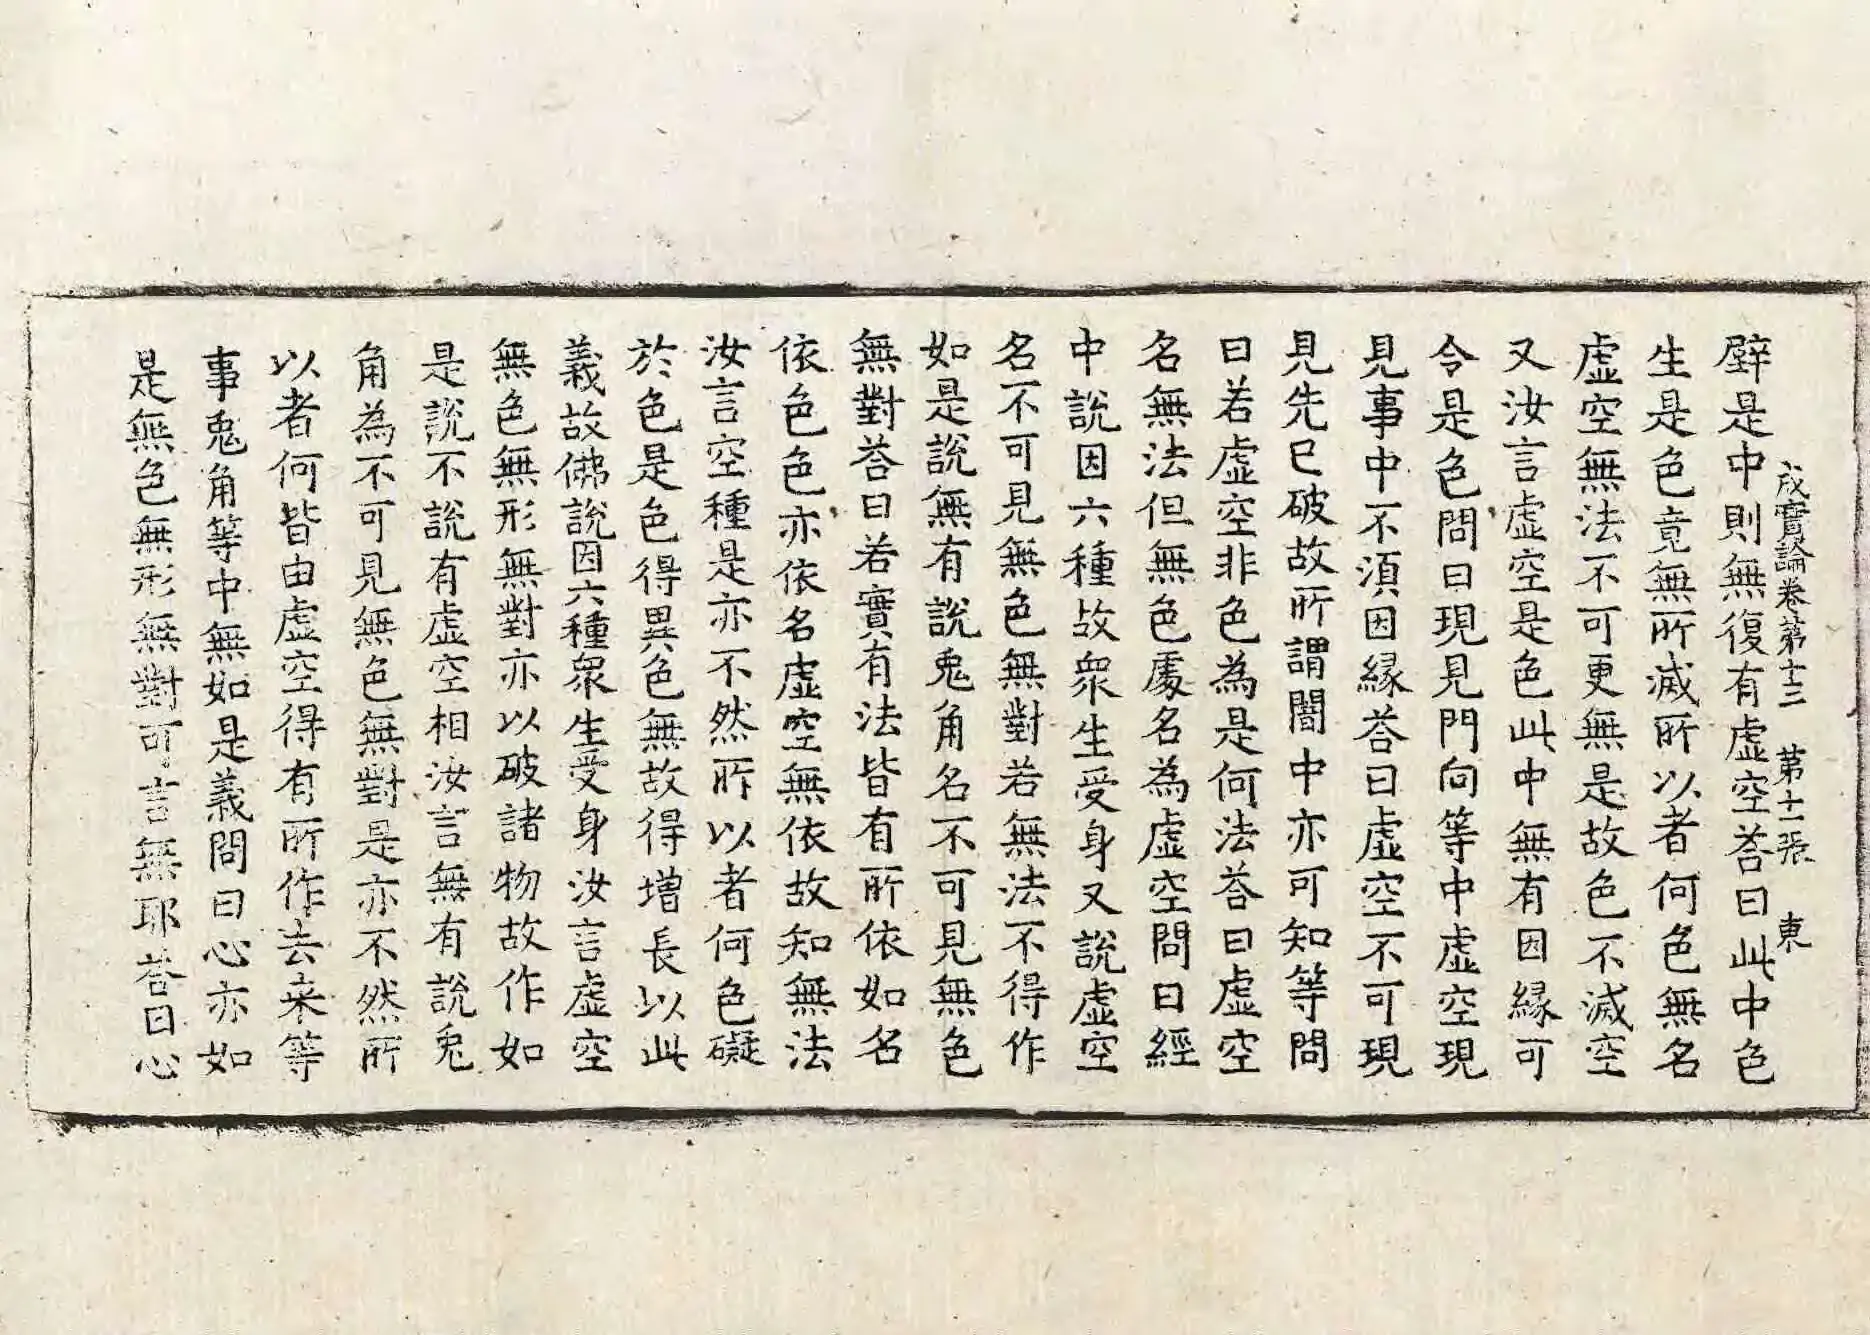 成實論卷第十三 第十一張 東
壁是中則無復有虛空荅曰此中色
生是色竟無所滅所以者何色無名
虛空無法不可更無是故色不滅空
又汝言虛空是色此中無有因緣可
令是色問曰現見門向等中虛空現
見事中不須因緣荅曰虛空不可現
見先已破故所謂闇中亦可知等問
曰若虛空非色為是何法荅曰虛空
名無法但無色處名為虛空問曰經
中說因六種故衆生受身又說虛空
名不可見無色無對若無法不得作
如是說無有說兎角名不可見無色
無對荅曰若實有法皆有所依如名
依色色亦依名虛空無依故知無法
汝言空種是亦不然所以者何色礙
於色是色得異色無故得增長以此
義故佛說因六種衆生受身汝言虛空
無色無形無對亦以破諸物故作如
是說不說有虛空相汝言無有說兎
角為不可見無色無對是亦不然所
以者何皆由虛空得有所作去来等
事兎角等中無如是義問曰心亦如
是無色無形無對可言無耶荅曰心